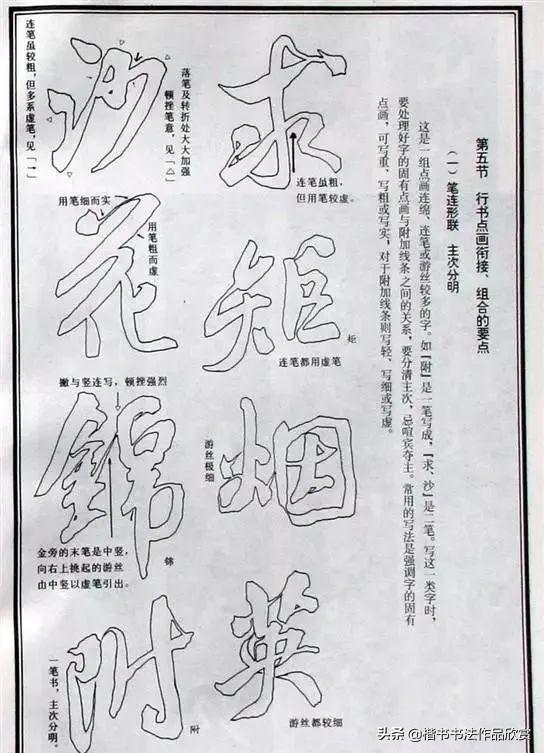 第五节　行书点画衔接、组合的要点
（一）笔连形联　主次分明
这是一组点画连绵、连笔或游丝较多的字。如『附』是一笔写成，『求、沙』是二笔。写这一类字时，
要处理好字的固有点画与附加线条之间的关系，要分清主次，忌喧宾夺主。常用的写法是强调字的固有
点画，可写重、写粗或写实，对于附加线条则写轻、写细或写虚。
求
连笔虽粗，
但用笔较虚。
矩
矩
连笔都用虚笔
烟
游丝极细
英
游丝都较细
沙
落笔及转折处大大加强
顿挫笔意，见「△」
连笔虽较粗，但多系虚笔，见「→」
花
用笔细而实
用笔粗而虚
錦
锦
撇与竖连写，顿挫强烈
金旁的末笔是中竖，
向右上挑起的游丝
由中竖以虚笔引出。
附
附
一笔书，主次分明。
头条 @楷书书法作品欣赏